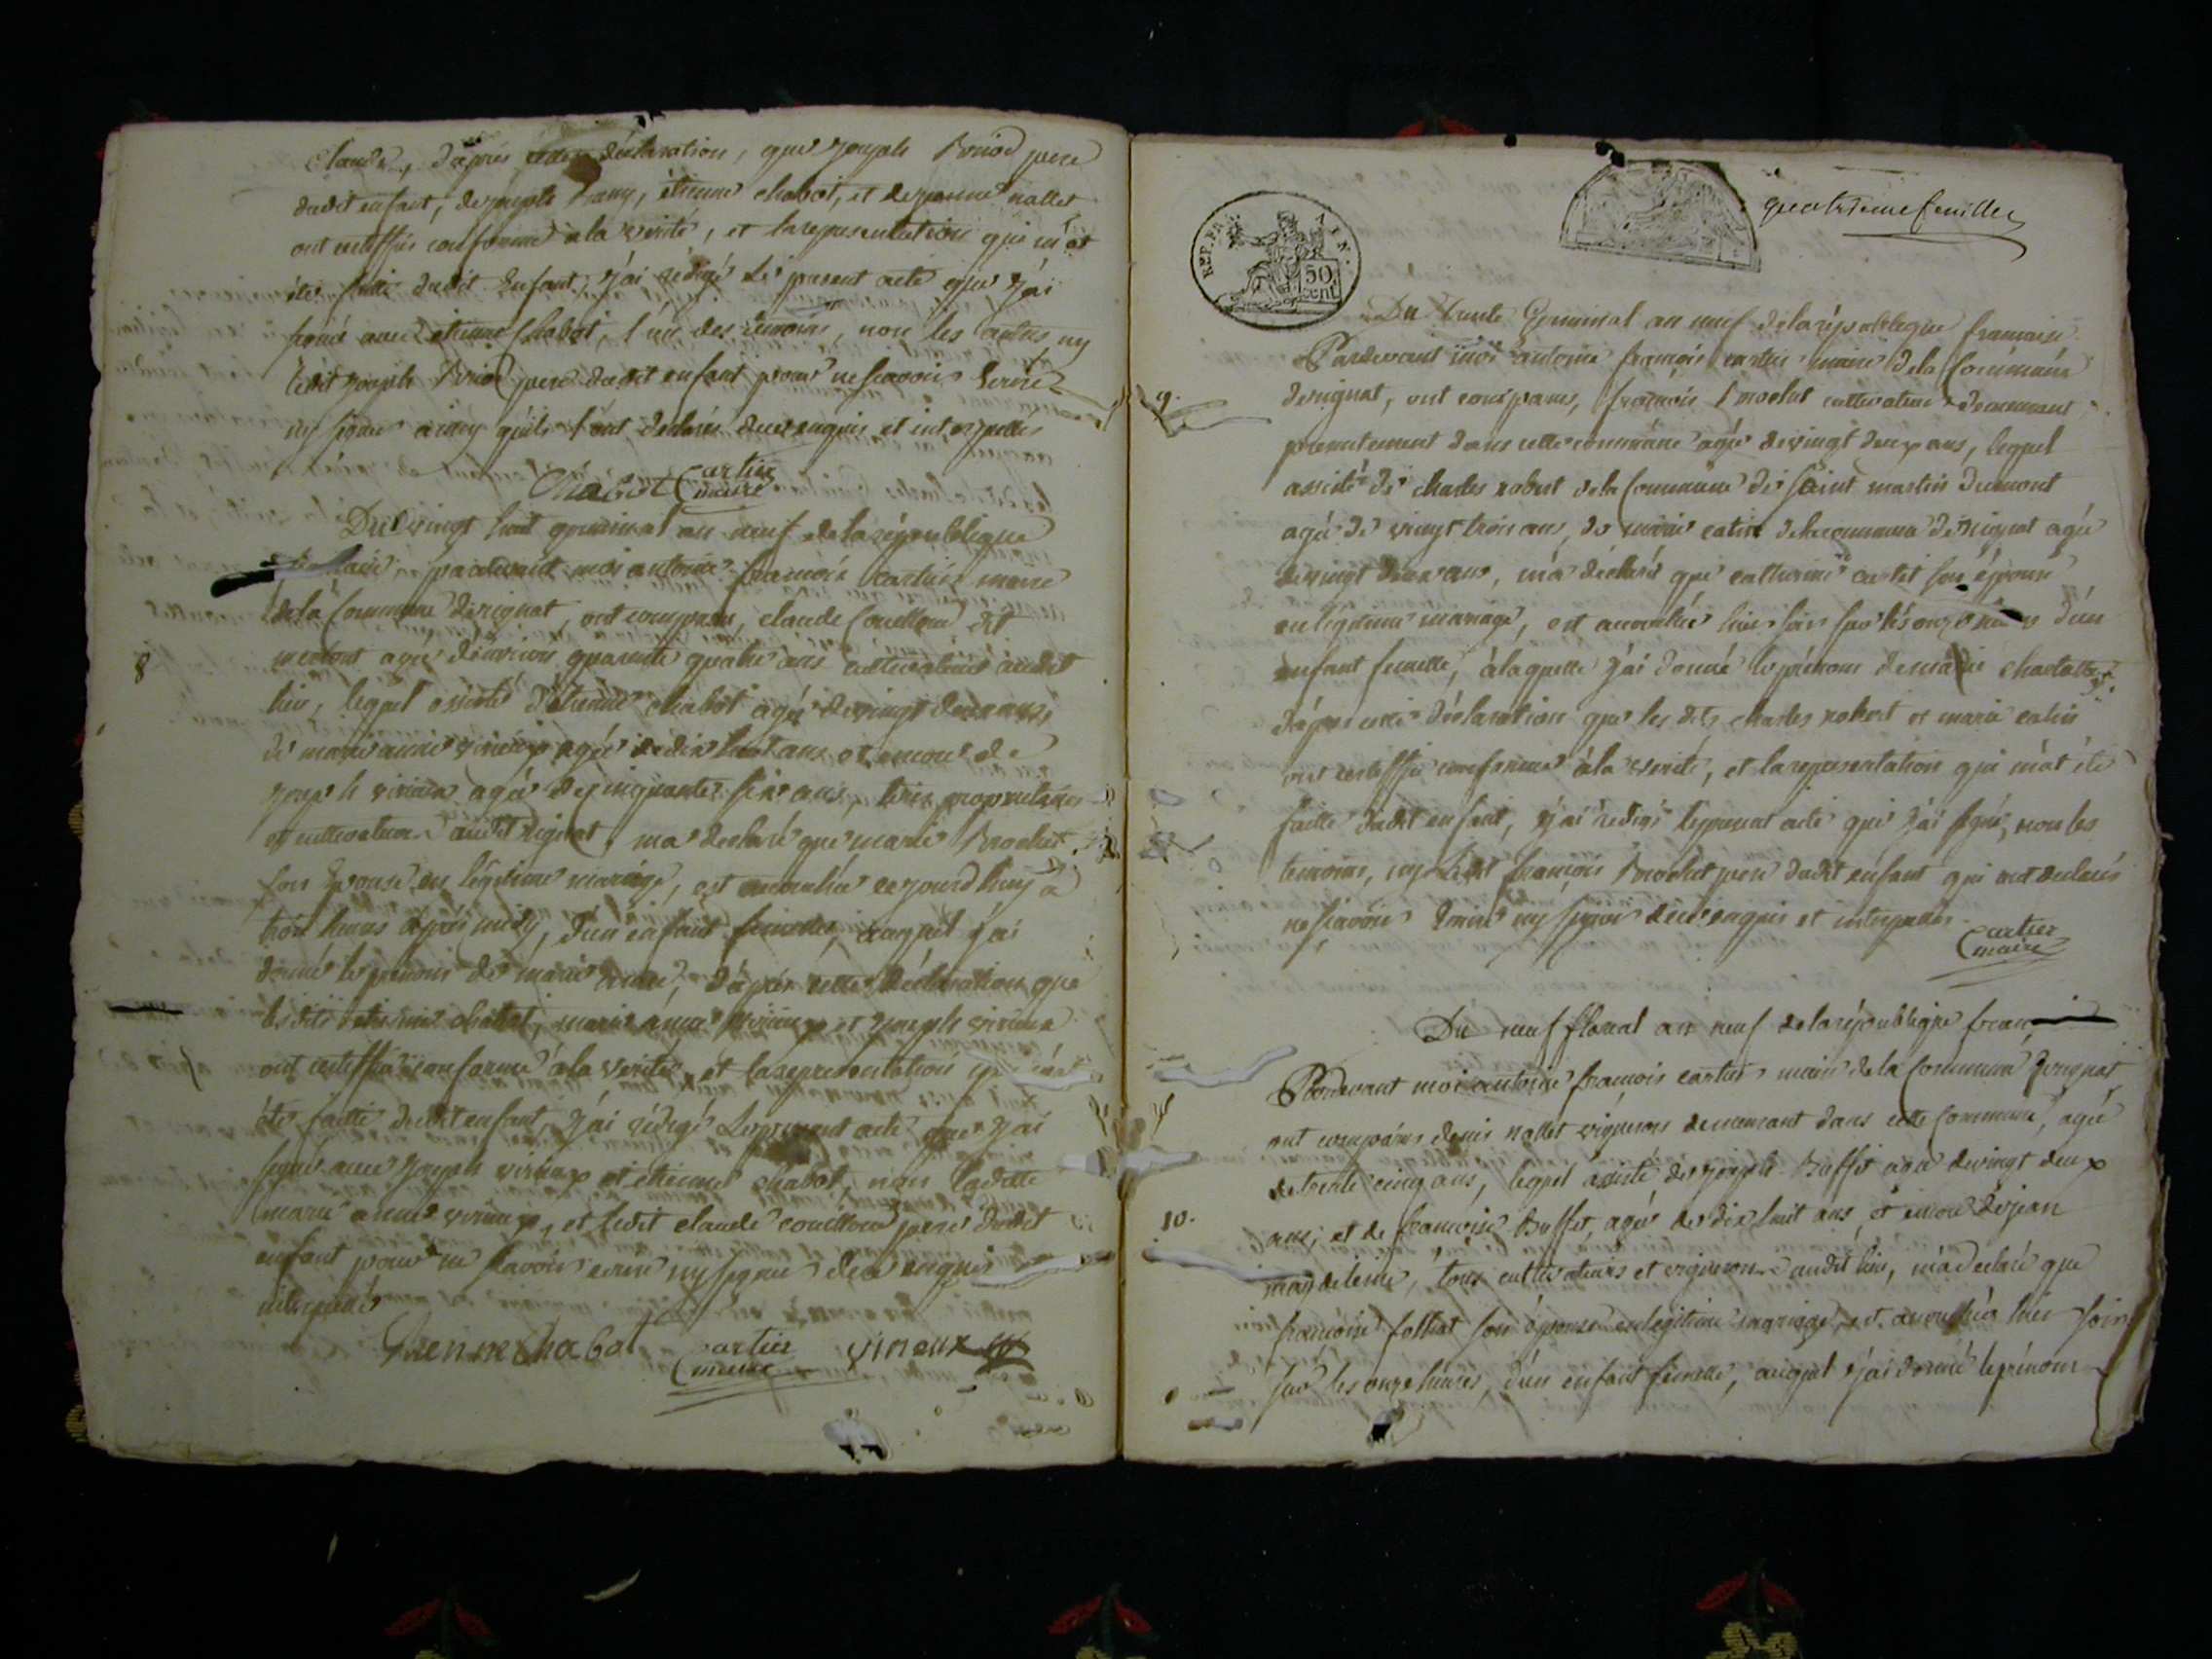 Claude, d'après cette déclaration, que joseph Briod pere
dudit enfant, de joseph Brany, étienne chabot, et de jeanne nallet
ont certiffié conforme a la verité, et la representation qui m'at
été faitte dudit Enfant, j'ai redigé le present acte que j'ai
signé avec etienne Chabot, l'un des temoins, non les autres ny
ledit joseph Briod pere dudit enfant pour ne scavoir écrire
ny signer ainsy qu'ils l'ont declarés deux enquis et interpellés
Chabot Cartier maire
Du vingt huit germinal an neuf de la république
pardevant moi antoine françois cartier maire
de la Commune de rignat, ont comparu, claude Couilloud dit
agé d'environ quarante quatre ans cultivateur audit
8
lieu, lequel assisté d'etienne chabot agé de vingt deux ans,
de marie anne virieux agée de dix huit ans et encore de
joseph virieux agé de cinquante six ans, tous proprietaires
et cultivateurs audit rignat, ma declaré que marie Brochet
son Epouse en légitime mariage, est accouchée cejourd'huy a
trois heures après midy, d'un enfant femelle, auquel j'ai
donné le prénom de marie anne, d'après cette déclaration que
lesdits etienne chabot, marie anne virieux et joseph virieux
ont certiffié conforme à la verité, et la representation qui m'at
été faitte dudit enfant, j'ai rédigé le present acte que j'ai
signé avec joseph virieux et etienne chabot, non ladite
marie anne virieux, et ledit claude couilloud pere dudit
enfant pour ne scavoir ecrire ny signer de ce enquis
interpellé
Etienne Chabot Cartier maire virieux
quatrieme feuillet
REP. FRA. AIN. 50 cent
Du trente Germinal an neuf de la république francaise
Pardevant moi antoine françois cartier maire de la Commune
9.
de rignat, ont comparus, françois Brochet cultivateur demeurant
presentement dans cette commune agé de vingt deux ans, lequel
assisté de charles robert de la Commune de Saint martin Dumont
agé de vingt trois ans, de marie catin de la commune de Rignat agée
de vingt deux ans, m'a déclaré que catherine cartet son épouse
en légitime mariage, est accouchée hier soir sur les onze heures d'un
enfant femelle, à laquelle j'ai donné le prénom de marie charlotte
d'après cette déclaration que les dits charles robert et marie catin
ont certiffié conforme à la verité, et la representation qui m'at été
faitte dudit enfant, j'ai redigé le present acte que j'ai signé, non les
temoins, ny ledit françois Brochet pere dudit enfant qui ont declarés
ne scavoir Ecrire ny signer deux enquis et interpellés
Cartier maire
Du neuf floreal an neuf de la république franc
Pardevant moi antoine françois cartier maire de la Commune de rignat
ont comparus denis nallet vigneron demeurant dans cette Commune, agé
de trente cinq ans, lequel assisté de joseph Buffet agé de vingt deux
10.
ans, et de francoise Buffet, agée de dix huit ans, et encore de jean
maydeleine, tous cultivateurs et vignerons audit lieu, m'a declaré que
francoise folliat son épouse en legitime mariage, est accouchée hier soir
sur les onze heures, d'un enfant femelle, auquel j'ai donné le prénom